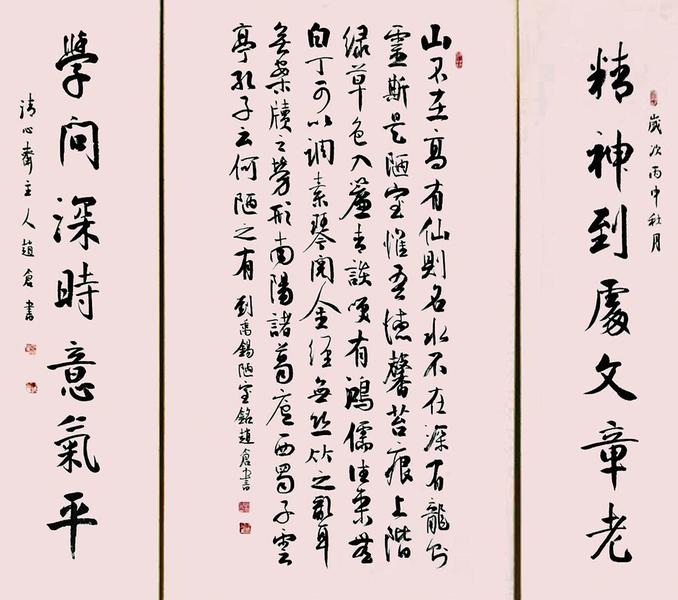 歲次丙申秋月
精神到處文章老
山不在高有仙則名水不在深有龍則
靈斯是陋室惟吾德馨苔痕上階
绿草色入簾青談咲有鴻儒往來無
白丁可以調素琴閱金經無丝竹之亂耳
無案牘之勞形南陽諸葛廬西蜀子雲
亭孔子云何陋之有 劉禹錫陋室銘趙倉書
學問深時意氣平
清心齋主人趙倉書